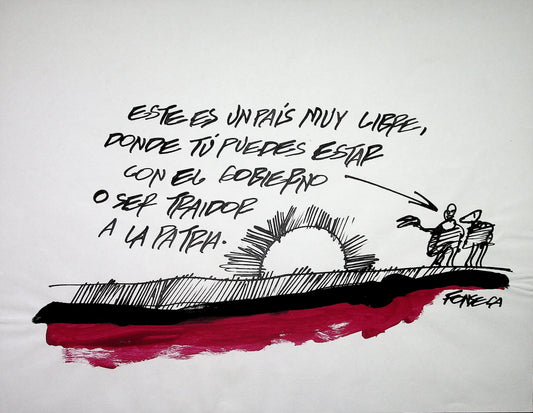 ESTE ES UN PAÍS MUY LIBRE,
DONDE TÚ PUEDES ESTAR
CON EL GOBIERNO
O SER TRAIDOR
A LA PATRIA.
FONSECA